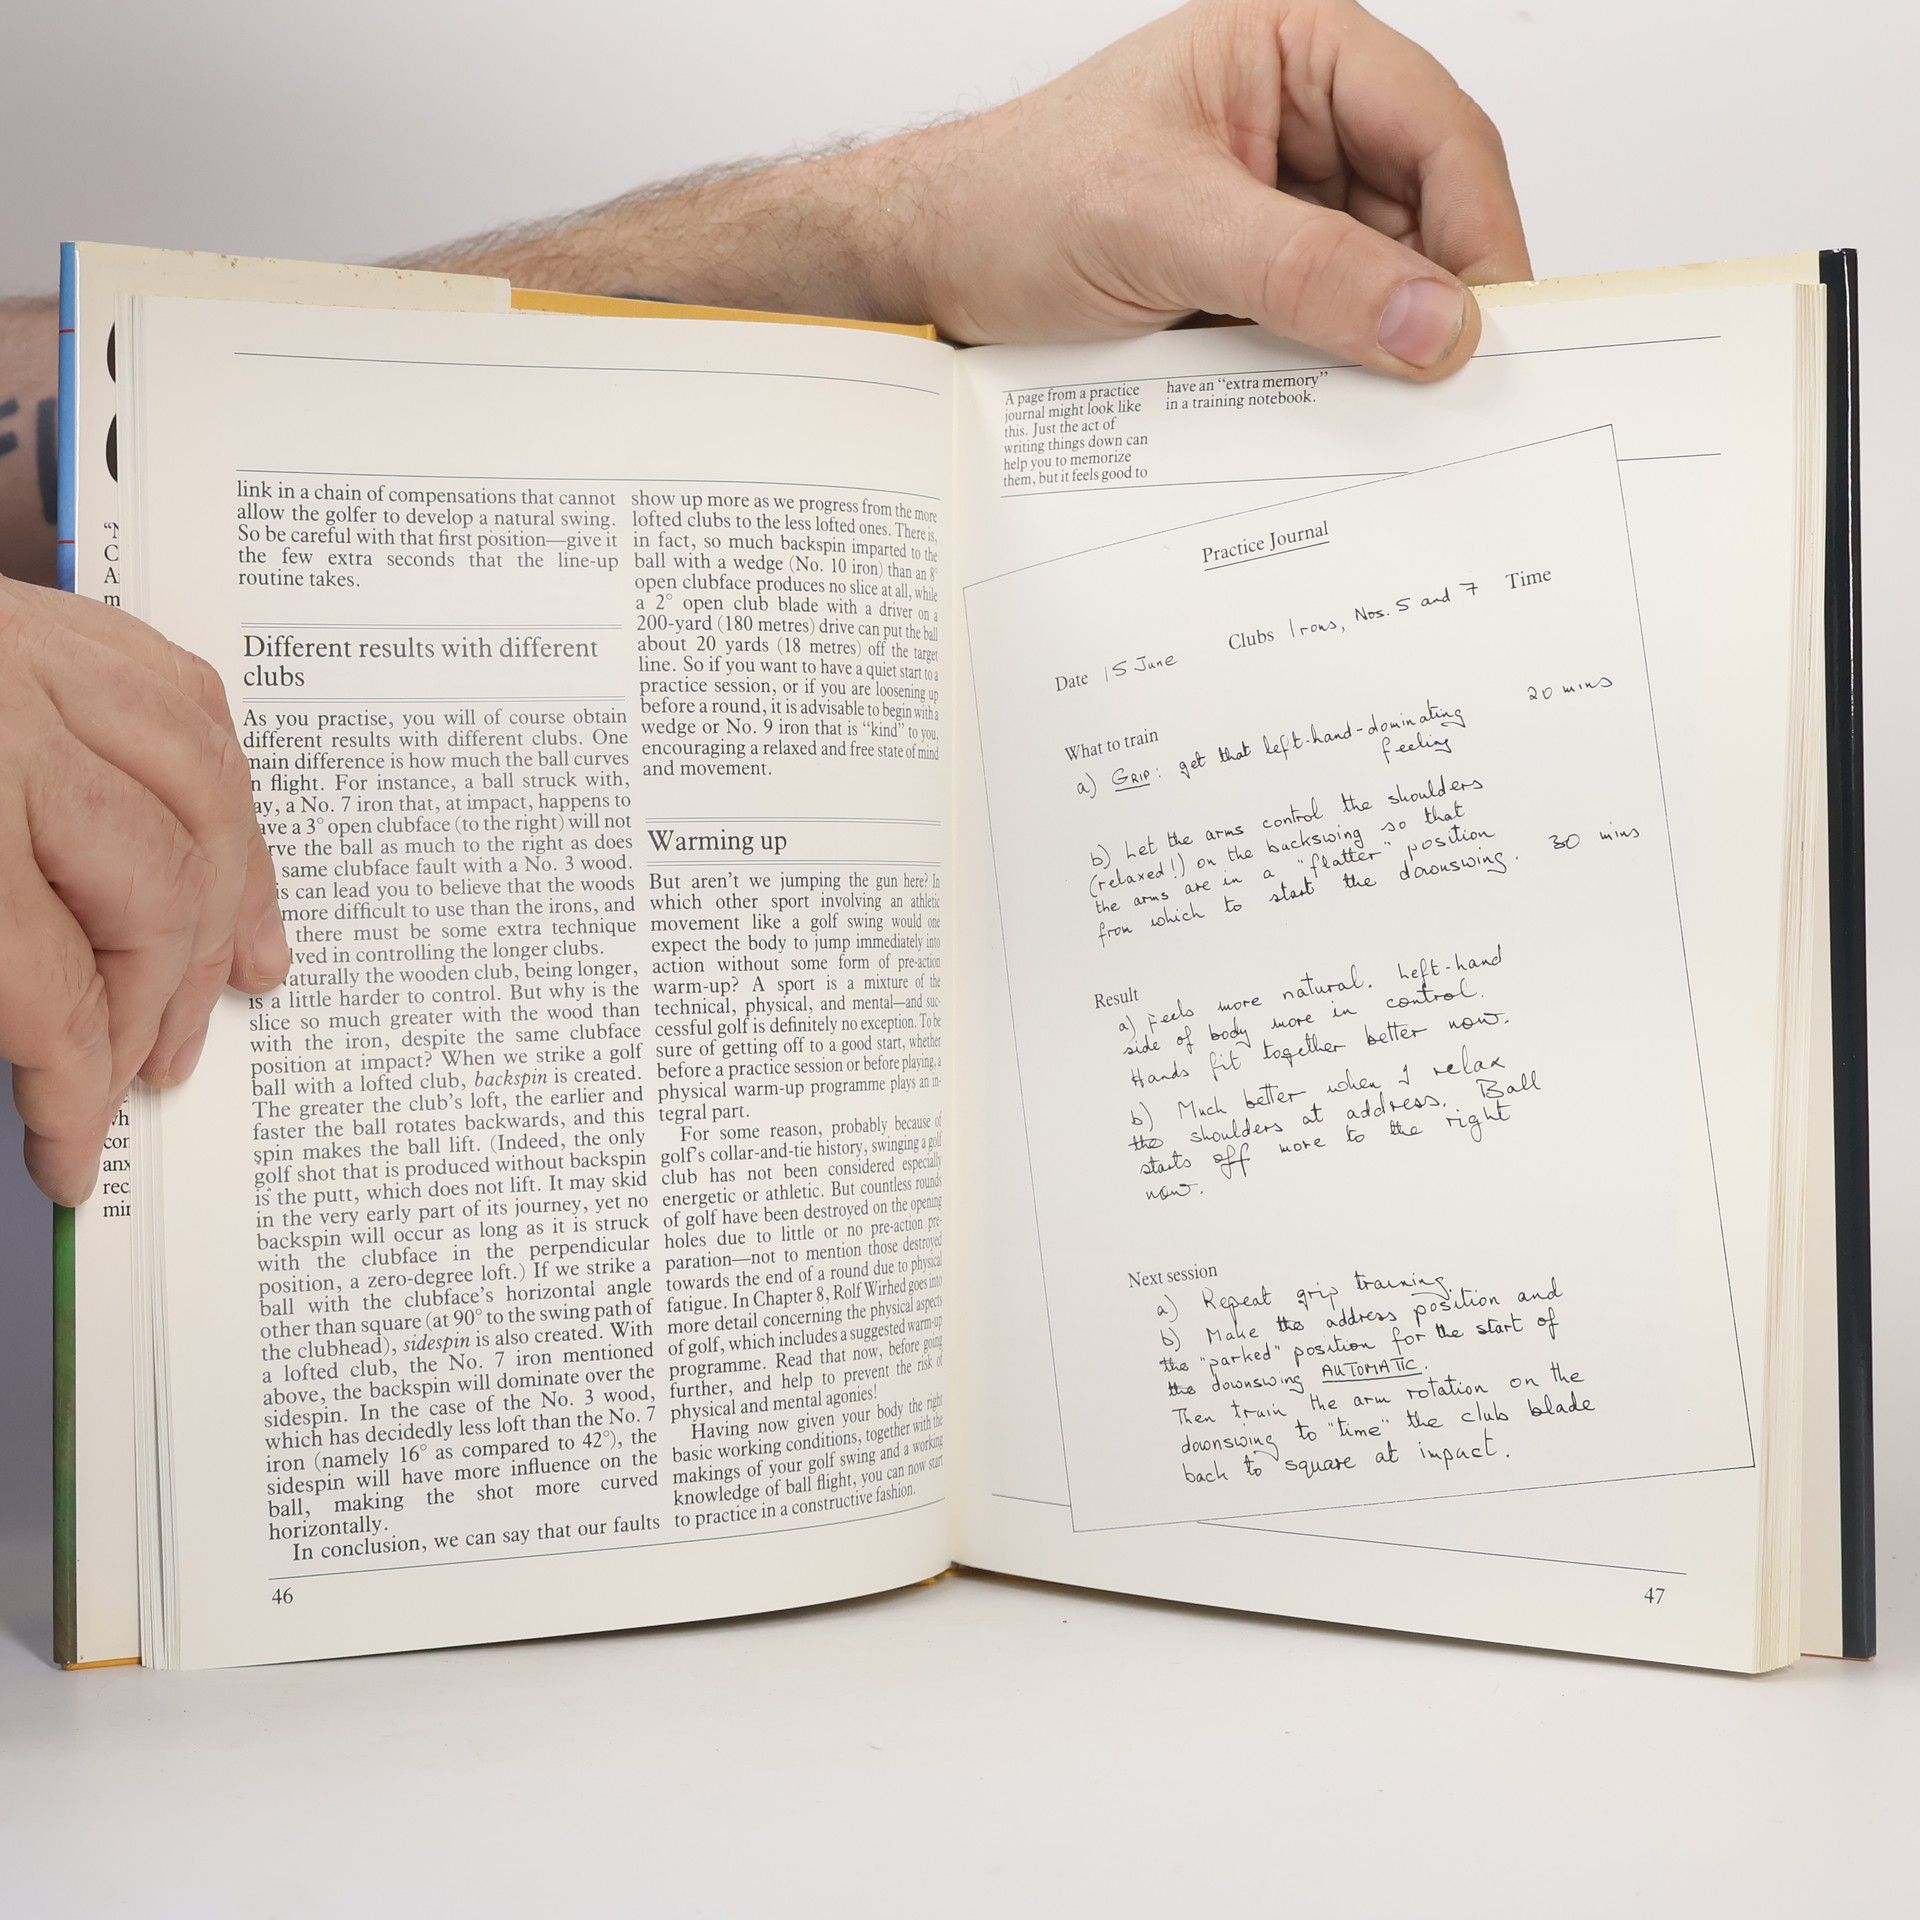 link in a chain of compensations that cannot
allow the golfer to develop a natural swing.
So be careful with that first position—give it
the few extra seconds that the line-up
routine takes.
Different results with different
clubs
As you practise, you will of course obtain
different results with different clubs. One
main difference is how much the ball curves
n flight. For instance, a ball struck with,
ay, a No. 7 iron that, at impact, happens to
ave a 3° open clubface (to the right) will not
rve the ball as much to the right as does
same clubface fault with a No. 3 wood.
is can lead you to believe that the woods
more difficult to use than the irons, and
there must be some extra technique
lved in controlling the longer clubs.
aturally the wooden club, being longer,
is a little harder to control. But why is the
slice so much greater with the wood than
with the iron, despite the same clubface
position at impact? When we strike a golf
ball with a lofted club, backspin is created.
The greater the club's loft, the earlier and
faster the ball rotates backwards, and this
spin makes the ball lift. (Indeed, the only
golf shot that is produced without backspin
is the putt, which does not lift. It may skid
in the very early part of its journey, yet no
backspin will occur as long as it is struck
with the clubface in the perpendicular
position, a zero-degree loft.) If we strike a
ball with the clubface's horizontal angle
other than square (at 90° to the swing path of
the clubhead), sidespin is also created. With
a lofted club, the No. 7 iron mentioned
above, the backspin will dominate over the
sidespin. In the case of the No. 3 wood,
which has decidedly less loft than the No. 7
iron (namely 16° as compared to 42°), the
sidespin will have more influence on the
ball, making the shot more curved
horizontally.
In conclusion, we can say that our faults
show up more as we progress from the more
lofted clubs to the less lofted ones. There is,
in fact, so much backspin imparted to the
ball with a wedge (No. 10 iron) than an 8°
open clubface produces no slice at all, while
a 2° open club blade with a driver on a
200-yard (180 metres) drive can put the ball
about 20 yards (18 metres) off the target
line. So if you want to have a quiet start to a
practice session, or if you are loosening up
before a round, it is advisable to begin with a
wedge or No. 9 iron that is "kind" to you,
encouraging a relaxed and free state of mind
and movement.
Warming up
But aren't we jumping the gun here? In
which other sport involving an athletic
movement like a golf swing would one
expect the body to jump immediately into
action without some form of pre-action
warm-up? A sport is a mixture of the
technical, physical, and mental—and suc-
cessful golf is definitely no exception. To be
sure of getting off to a good start, whether
before a practice session or before playing, a
physical warm-up programme plays an in-
tegral part.
For some reason, probably because of
golf's collar-and-tie history, swinging a golf
club has not been considered especially
energetic or athletic. But countless rounds
of golf have been destroyed on the opening
holes due to little or no pre-action pre-
paration—not to mention those destroyed
towards the end of a round due to physical
fatigue. In Chapter 8, Rolf Wirhed goes into
more detail concerning the physical aspects
of golf, which includes a suggested warm-up
programme. Read that now, before going
further, and help to prevent the risk of
physical and mental agonies!
Having now given your body the right
basic working conditions, together with the
makings of your golf swing and a working
knowledge of ball flight, you can now start
to practice in a constructive fashion.
46
A page from a practice
journal might look like
this. Just the act of
writing things down can
help you to memorize
them, but it feels good to
have an "extra memory"
in a training notebook.
Practice Journal
Date 15 June Clubs Irons, Nos. 5 and 7 Time
What to train
a) GRIP: get that left-hand-dominating 20 mins
feeling
b) Let the arms control the shoulders
(relaxed!) on the backswing so that
the arms are in a "flatter" position
from which to start the downswing. 30 mins
Result
a) Feels more natural. Left-hand
side of body more in control.
Hands fit together better now.
b) Much better when I relax
the shoulders at address. Ball
starts off more to the right
now.
Next session
a) Repeat grip training.
b) Make the address position and
the "parked" position for the start of
the downswing AUTOMATIC.
Then train the arm rotation on the
downswing to "time" the club blade
back to square at impact.
47